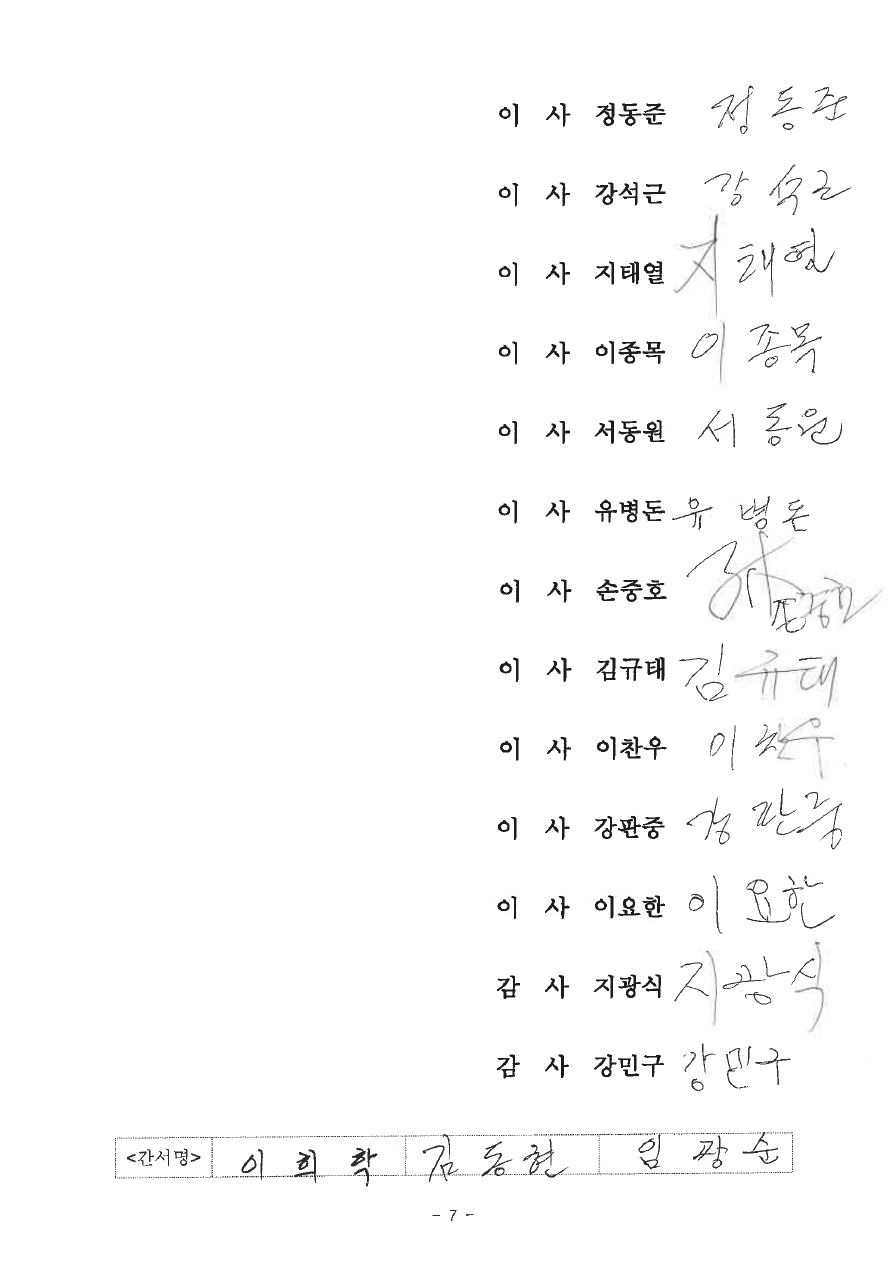 이 사 정동준 정동준
이 사 강석근 강석근
이 사 지태열 지태열
이 사 이종목 이종목
이 사 서동원 서동원
이 사 유병돈 유병돈
이 사 손중호 손중호
이 사 김규태 김규태
이 사 이찬우 이찬우
이 사 강판중 강판중
이 사 이요한 이요한
감 사 지광식 지광식
감 사 강민구 강민구
<간서명> 이희학 김동현 임광순
- 7 -